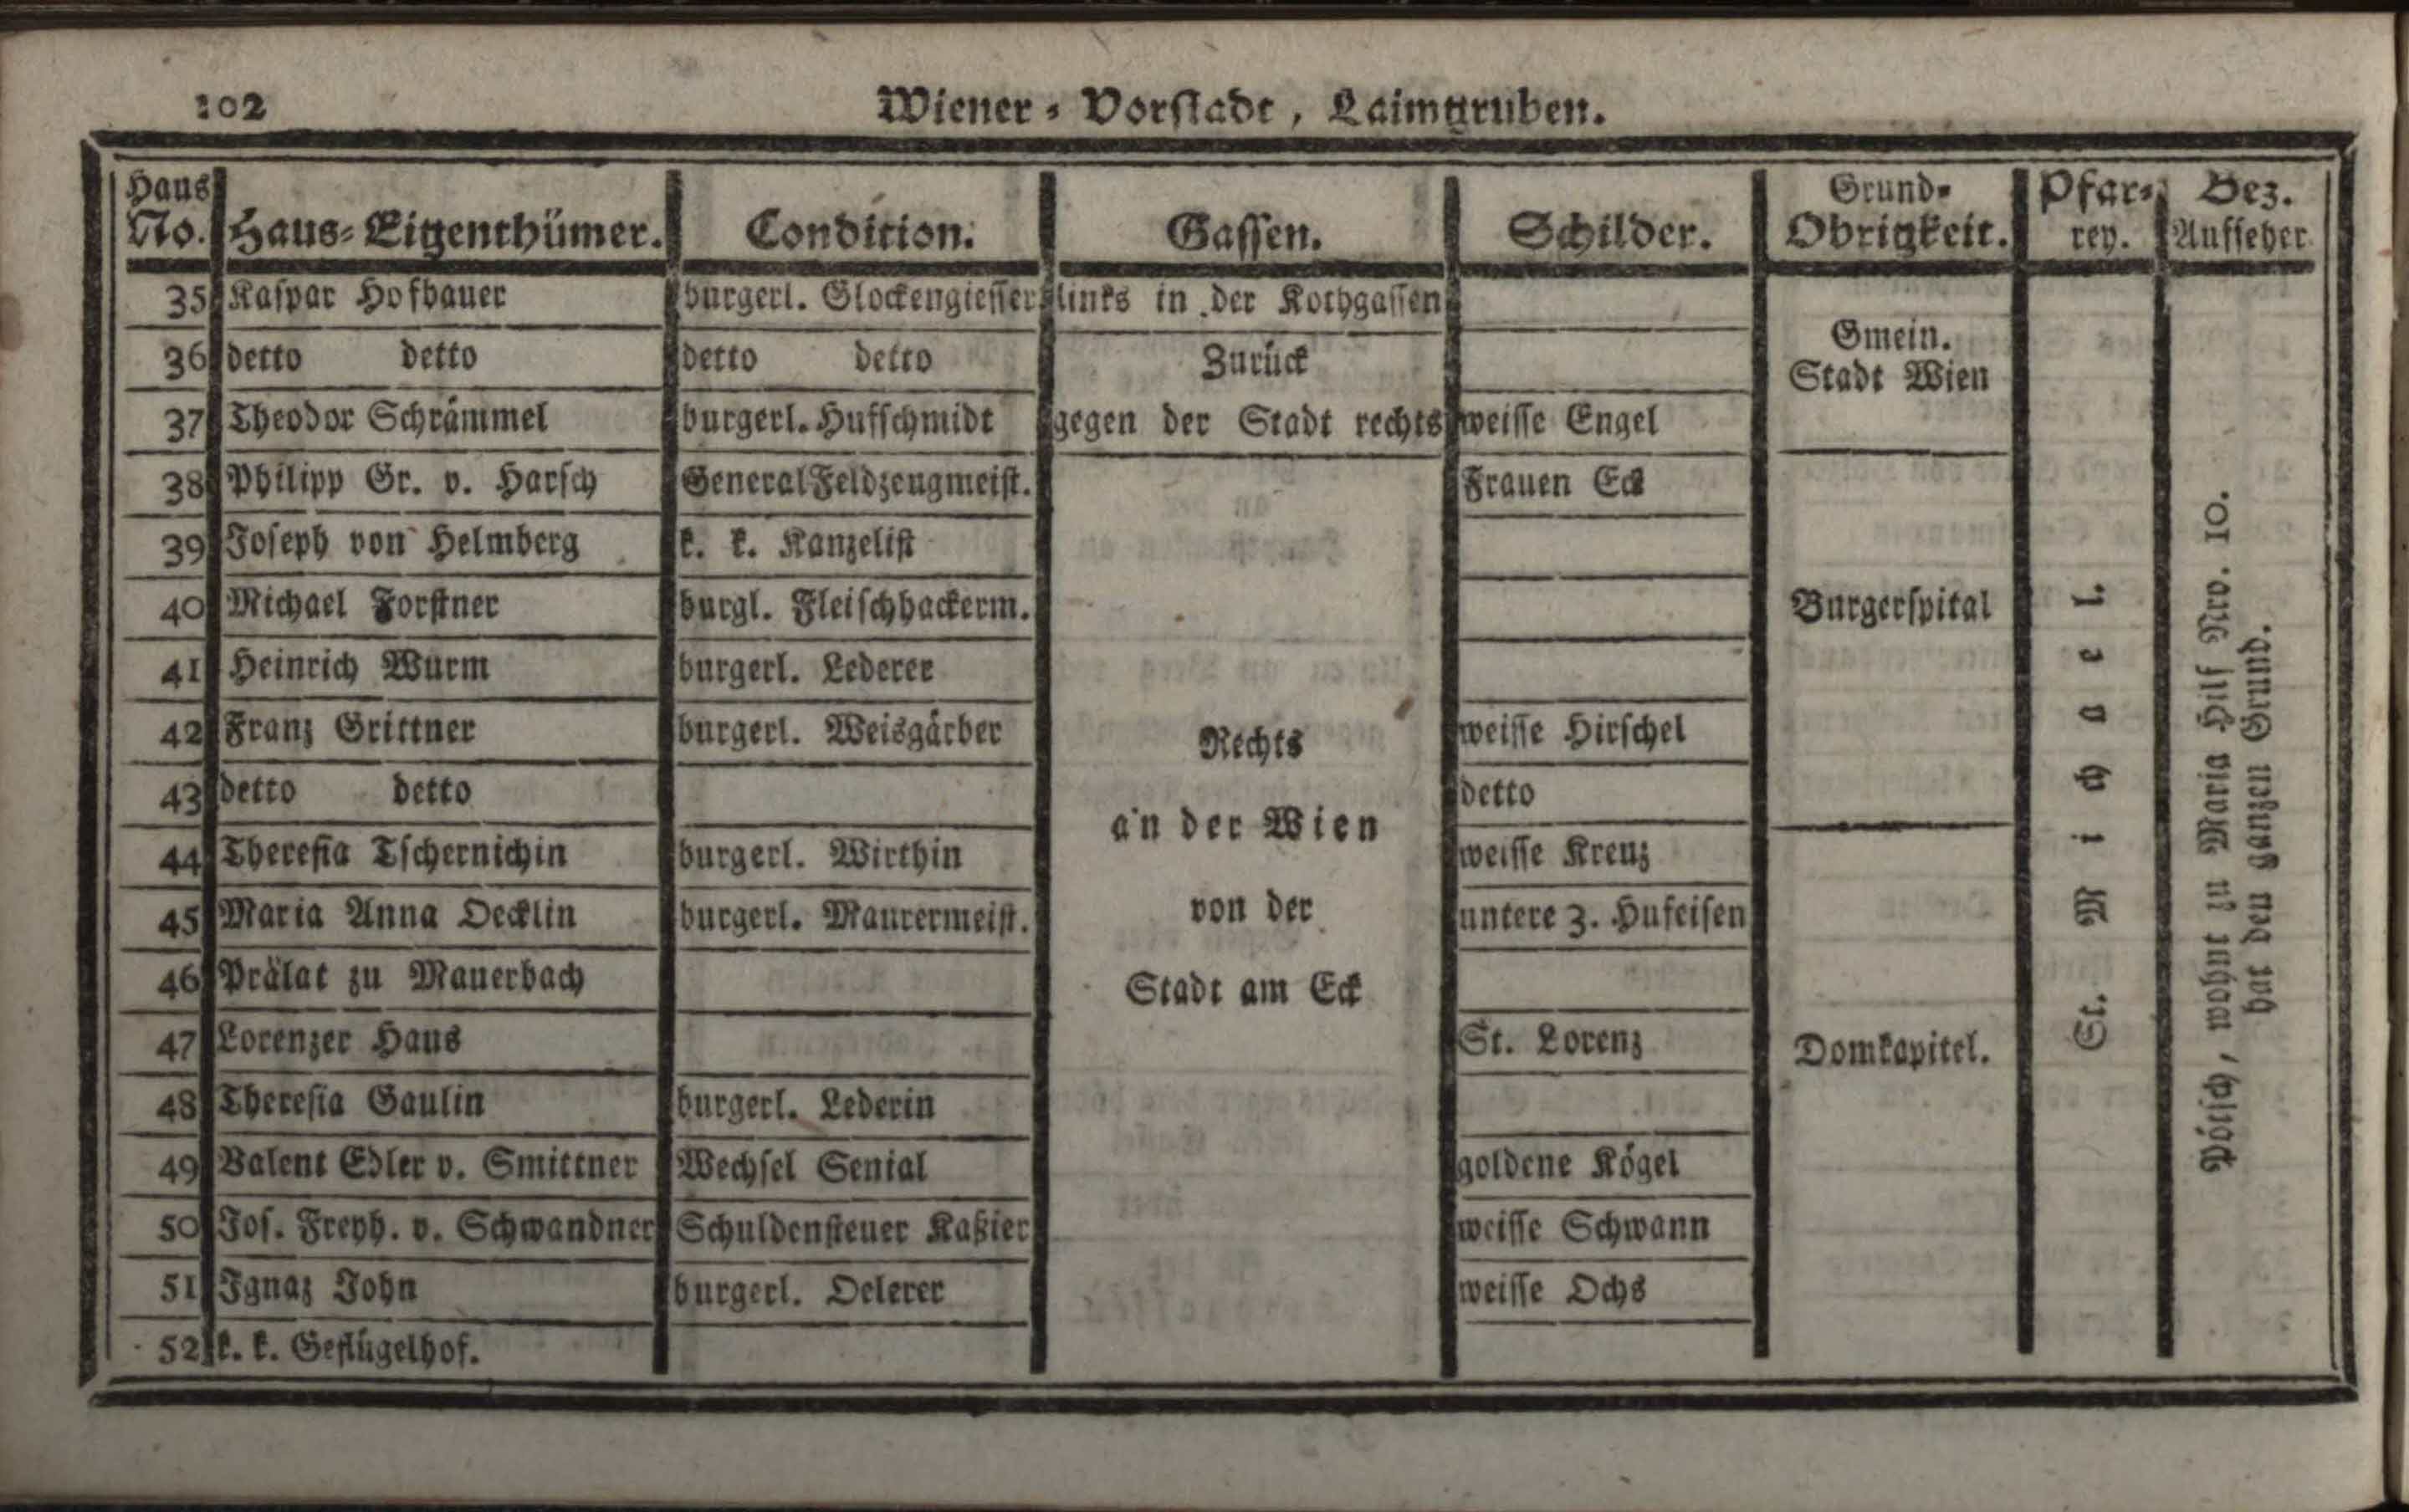 102
Wiener-Vorstadt, Laimgruben.
Haus No. | Haus-Eigenthümer. | Condition. | Gassen. | Schilder. | Grund-Obrigkeit. | Pfar-rey. | Bez. Aufseher
35 Kaspar Hofbauer | burgerl. Glockengiesser | links in der Kothgassen
Gmein.
36 detto detto | detto detto | Zurück
Stadt Wien
37 Theodor Schrämmel | burgerl. Hufschmidt | gegen der Stadt rechts | weisse Engel
38 Philipp Gr. v. Harsch | General Feldzeugmeist. | Frauen Eck
39 Joseph von Helmberg | k. k. Kanzelist
40 Michael Forstner | burgl. Fleischhackerm. | Burgerspital
41 Heinrich Wurm | burgerl. Lederer
42 Franz Grittner | burgerl. Weisgärber | Rechts | weisse Hirschel
43 detto detto | detto
44 Theresia Tschernichin | burgerl. Wirthin | an der Wien | weisse Kreuz
45 Maria Anna Oecklin | burgerl. Maurermeist. | von der | untere 3. Hufeisen
46 Prälat zu Mauerbach | Stadt am Eck
47 Lorenzer Haus | St. Lorenz | Domkapitel.
48 Theresia Gaulin | burgerl. Lederin
49 Valent Edler v. Smittner | Wechsel Sensal | goldene Kögel
50 Jos. Freyh. v. Schwandner | Schuldensteuer Kaßier | weisse Schwann
51 Ignaz John | burgerl. Oelerer | weisse Ochs
52 k. k. Geflügelhof.
St. Michael.
Pötsch, wohnt zu Maria Hilf Nro. 10.
hat den ganzen Grund.